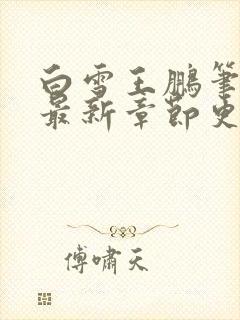 白雪王鹏笔
最新章节史
傅啸天